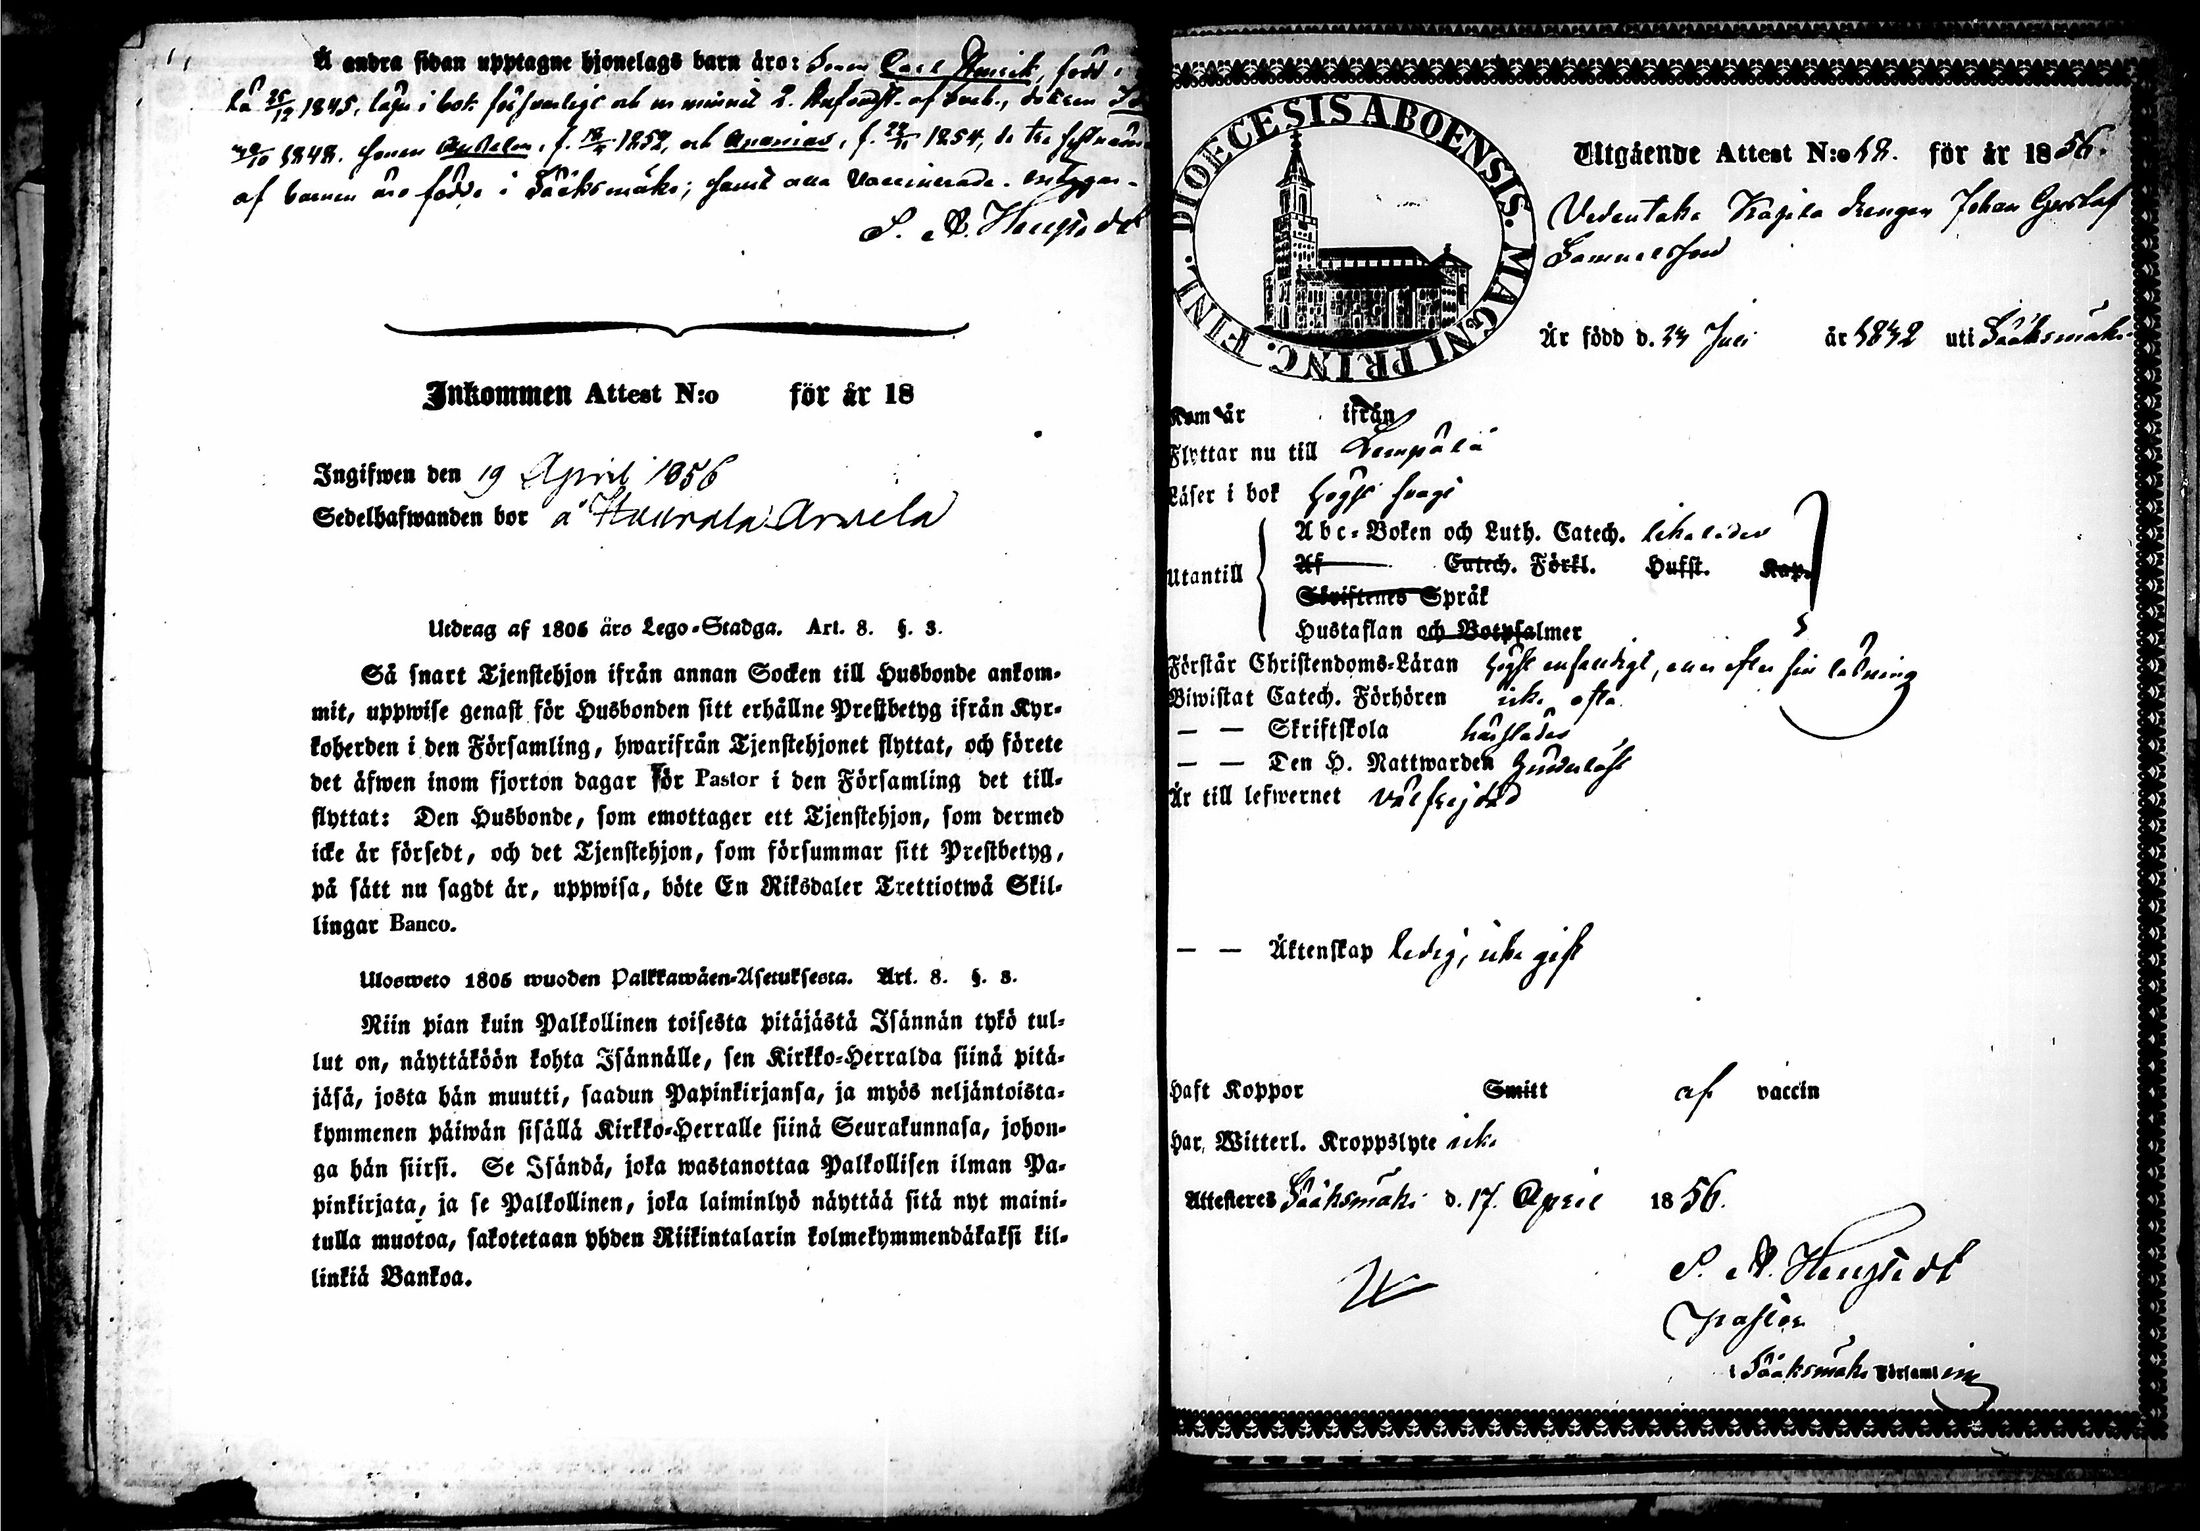 Å andra sidan upptagne hjonelags barn äro: Sonen Carl Henrik, född i
25/12 1845, läser i bok försvarligt och en minnet 2. dottren
1848. sonen Anselm, f. 1852, och Ananias, f. 1854, de tre
af barnen äro födde i Sääksmäki; samt alla vaccinerade.
S. A. Hengstedt
Inkommen Attest N:o för år 18
Ingifwen den 19 April 1856
Sedelhafwanden bor å Kuurala Anuela
Utdrag af 1805 års Lego-Stadga. Art. 8. §. 3.
Så snart Tjenstehjon ifrån annan Socken till Husbonde ankom-
mit, uppwise genast för Husbonden sitt erhållne Prestbetyg ifrån Kyr-
koherden i den Församling, hwarifrån Tjenstehjonet flyttat, och förete
det äfwen inom fjorton dagar för Pastor i den Församling det till-
flyttat: Den Husbonde, som emottager ett Tjenstehjon, som dermed
icke är försedt, och det Tjenstehjon, som försummar sitt Prestbetyg,
på sätt nu sagdt är, uppwisa, böte En Riksdaler Trettiotwå Skil-
lingar Banco.
Ulosweto 1805 wuoden Palkkawäen-Asetuksesta. Art. 8. §. 3.
Niin pian kuin Palkollinen toisesta pitäjästä Isännän tykö tul-
lut on, näyttäköön kohta Isännälle, sen Kirkko-Herralda siinä pitä-
jäsä, josta hän muutti, saadun Papinkirjansa, ja myös neljäntoista-
kymmenen päiwän sisällä Kirkko-Herralle siinä Seurakunnasa, johon-
ga hän siirsi. Se Isändä, joka wastanottaa Palkollisen ilman Pa-
pinkirjata, ja se Palkollinen, joka laiminlyö näyttää sitä nyt maini-
tulla muotoa, sakotetaan yhden Riikintalarin kolmekymmendäkaksi kil-
linkiä Bankoa.
DIOECESIS ABOENSIS. MAGNI PRINC. FINL.
Utgående Attest N:o 48. för år 1856.
Vedentaka Kajila drengen Johan Gustaf
Samuelsson
Är född d. 24 Juli år 1832 uti Sääksmäki
Kom år ifrån
Flyttar nu till Lempälä
Läser i bok högst svagt
Utantill
Abc-Boken och Luth. Catech. likaledes
Af Catech. Förkl. Husst. Kap.
Skriftenes Språk
Hustaflan och Botpsalmer
Förstår Christendoms-Läran högst enfaldigt, men efter sin läsning
Biwistat Catech. Förhören icke ofta
— — Skriftskola härstädes
— — Den H. Nattwarden hinderlöst
Är till lefwernet välfrejdad
— — Äktenskap ledig, icke gift
Haft Koppor Smitt af vaccin
Har Witterl. Kroppslyte icke
Attesteres Sääksmäki d. 17. April 1856.
S. A. Hengstedt
Pastor
i Sääksmäki Församling